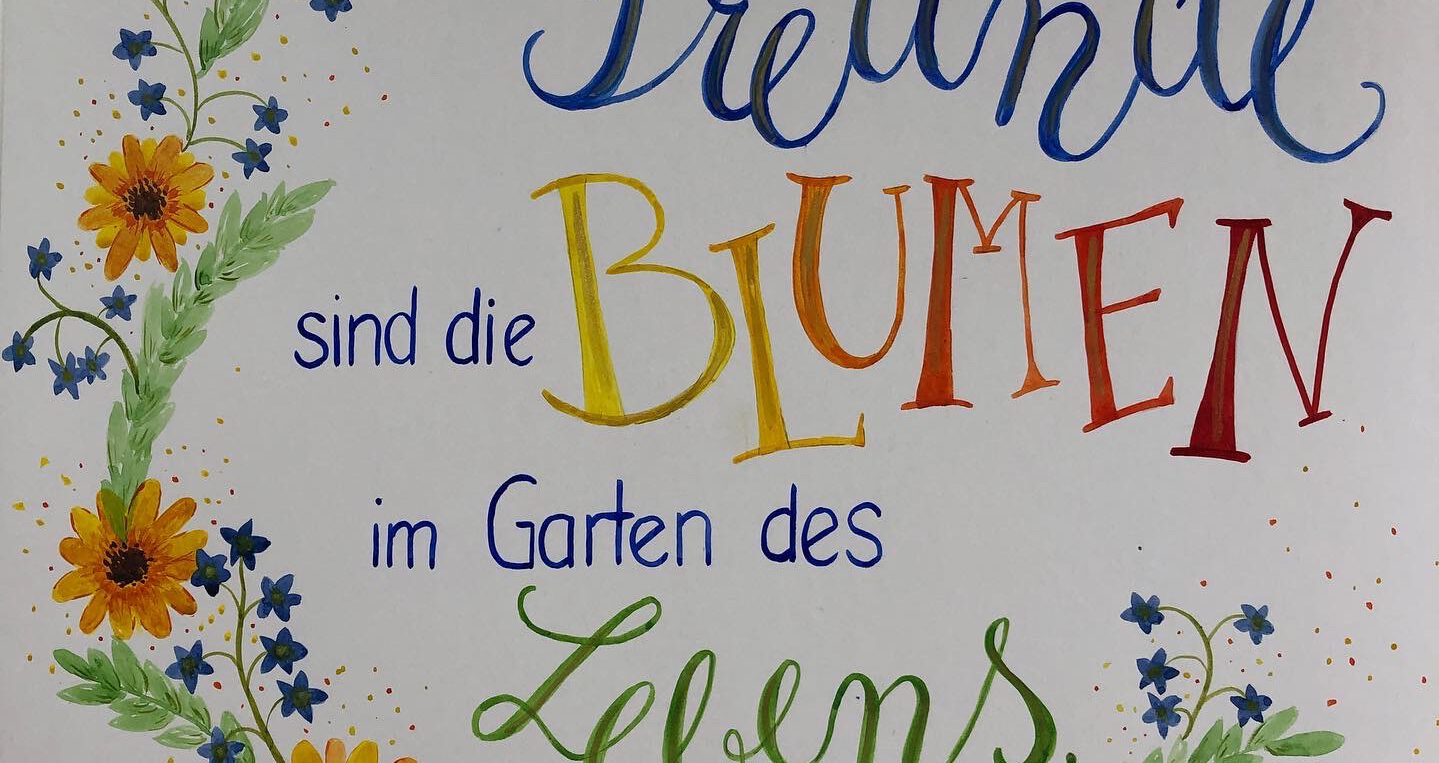 Freunde
sind die BLUMEN
im Garten des
Lebens.